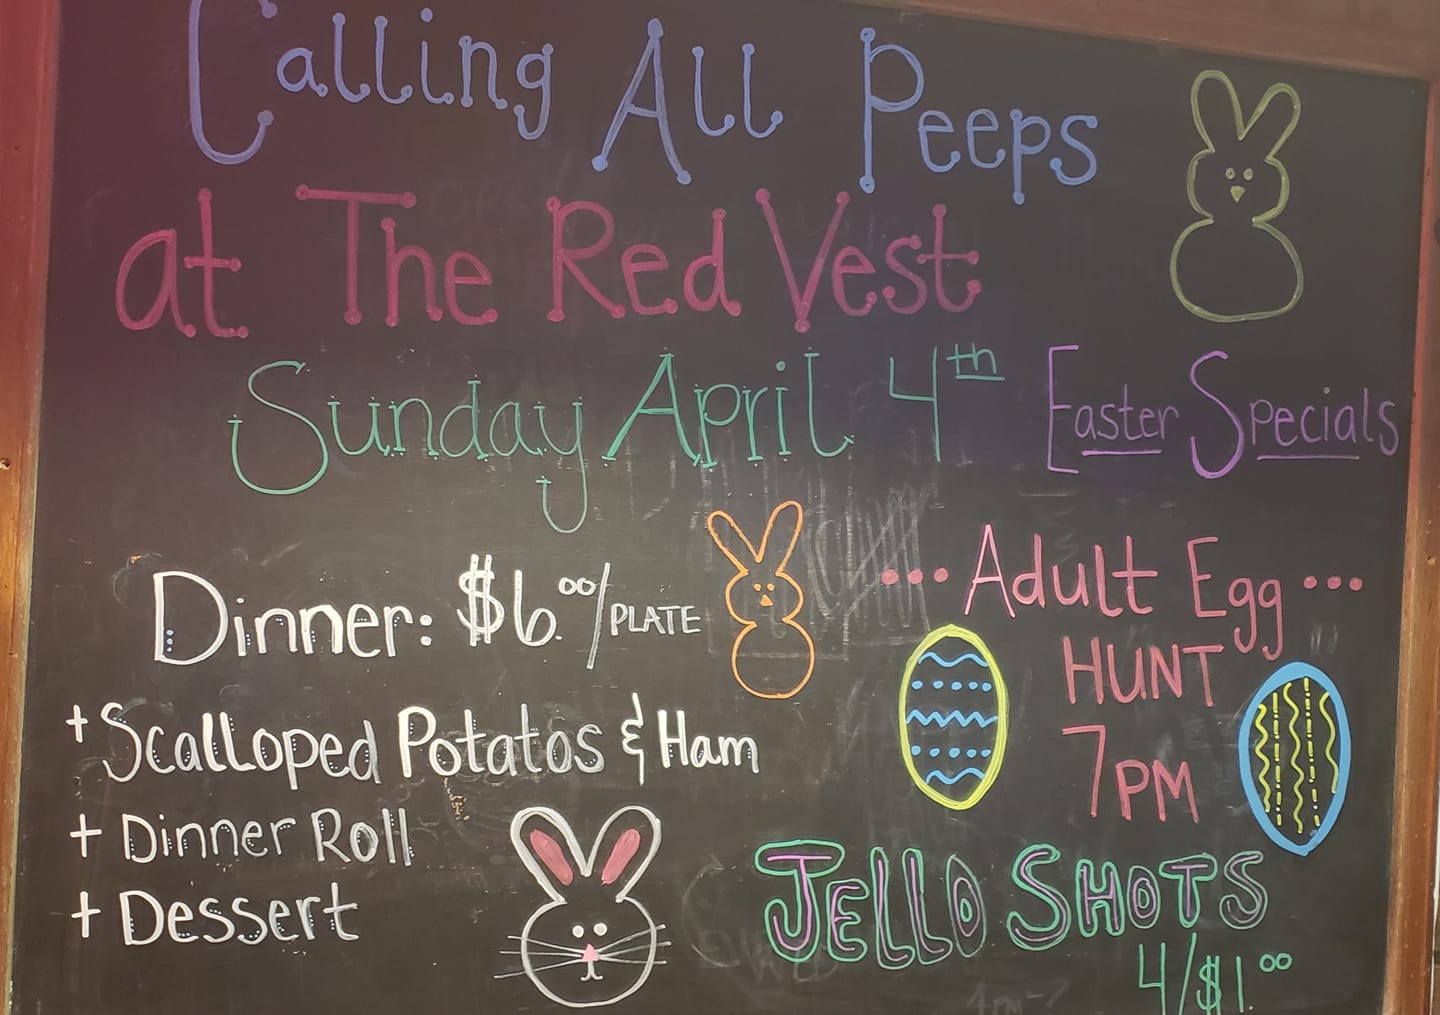 Calling All Peeps
at The Red Vest
Sunday April 4th Easter Specials
Dinner: $6.00/PLATE
+ Scalloped Potatos & Ham
+ Dinner Roll
+ Dessert
... Adult Egg ...
HUNT
7PM
JELLO SHOTS
4/$1.00